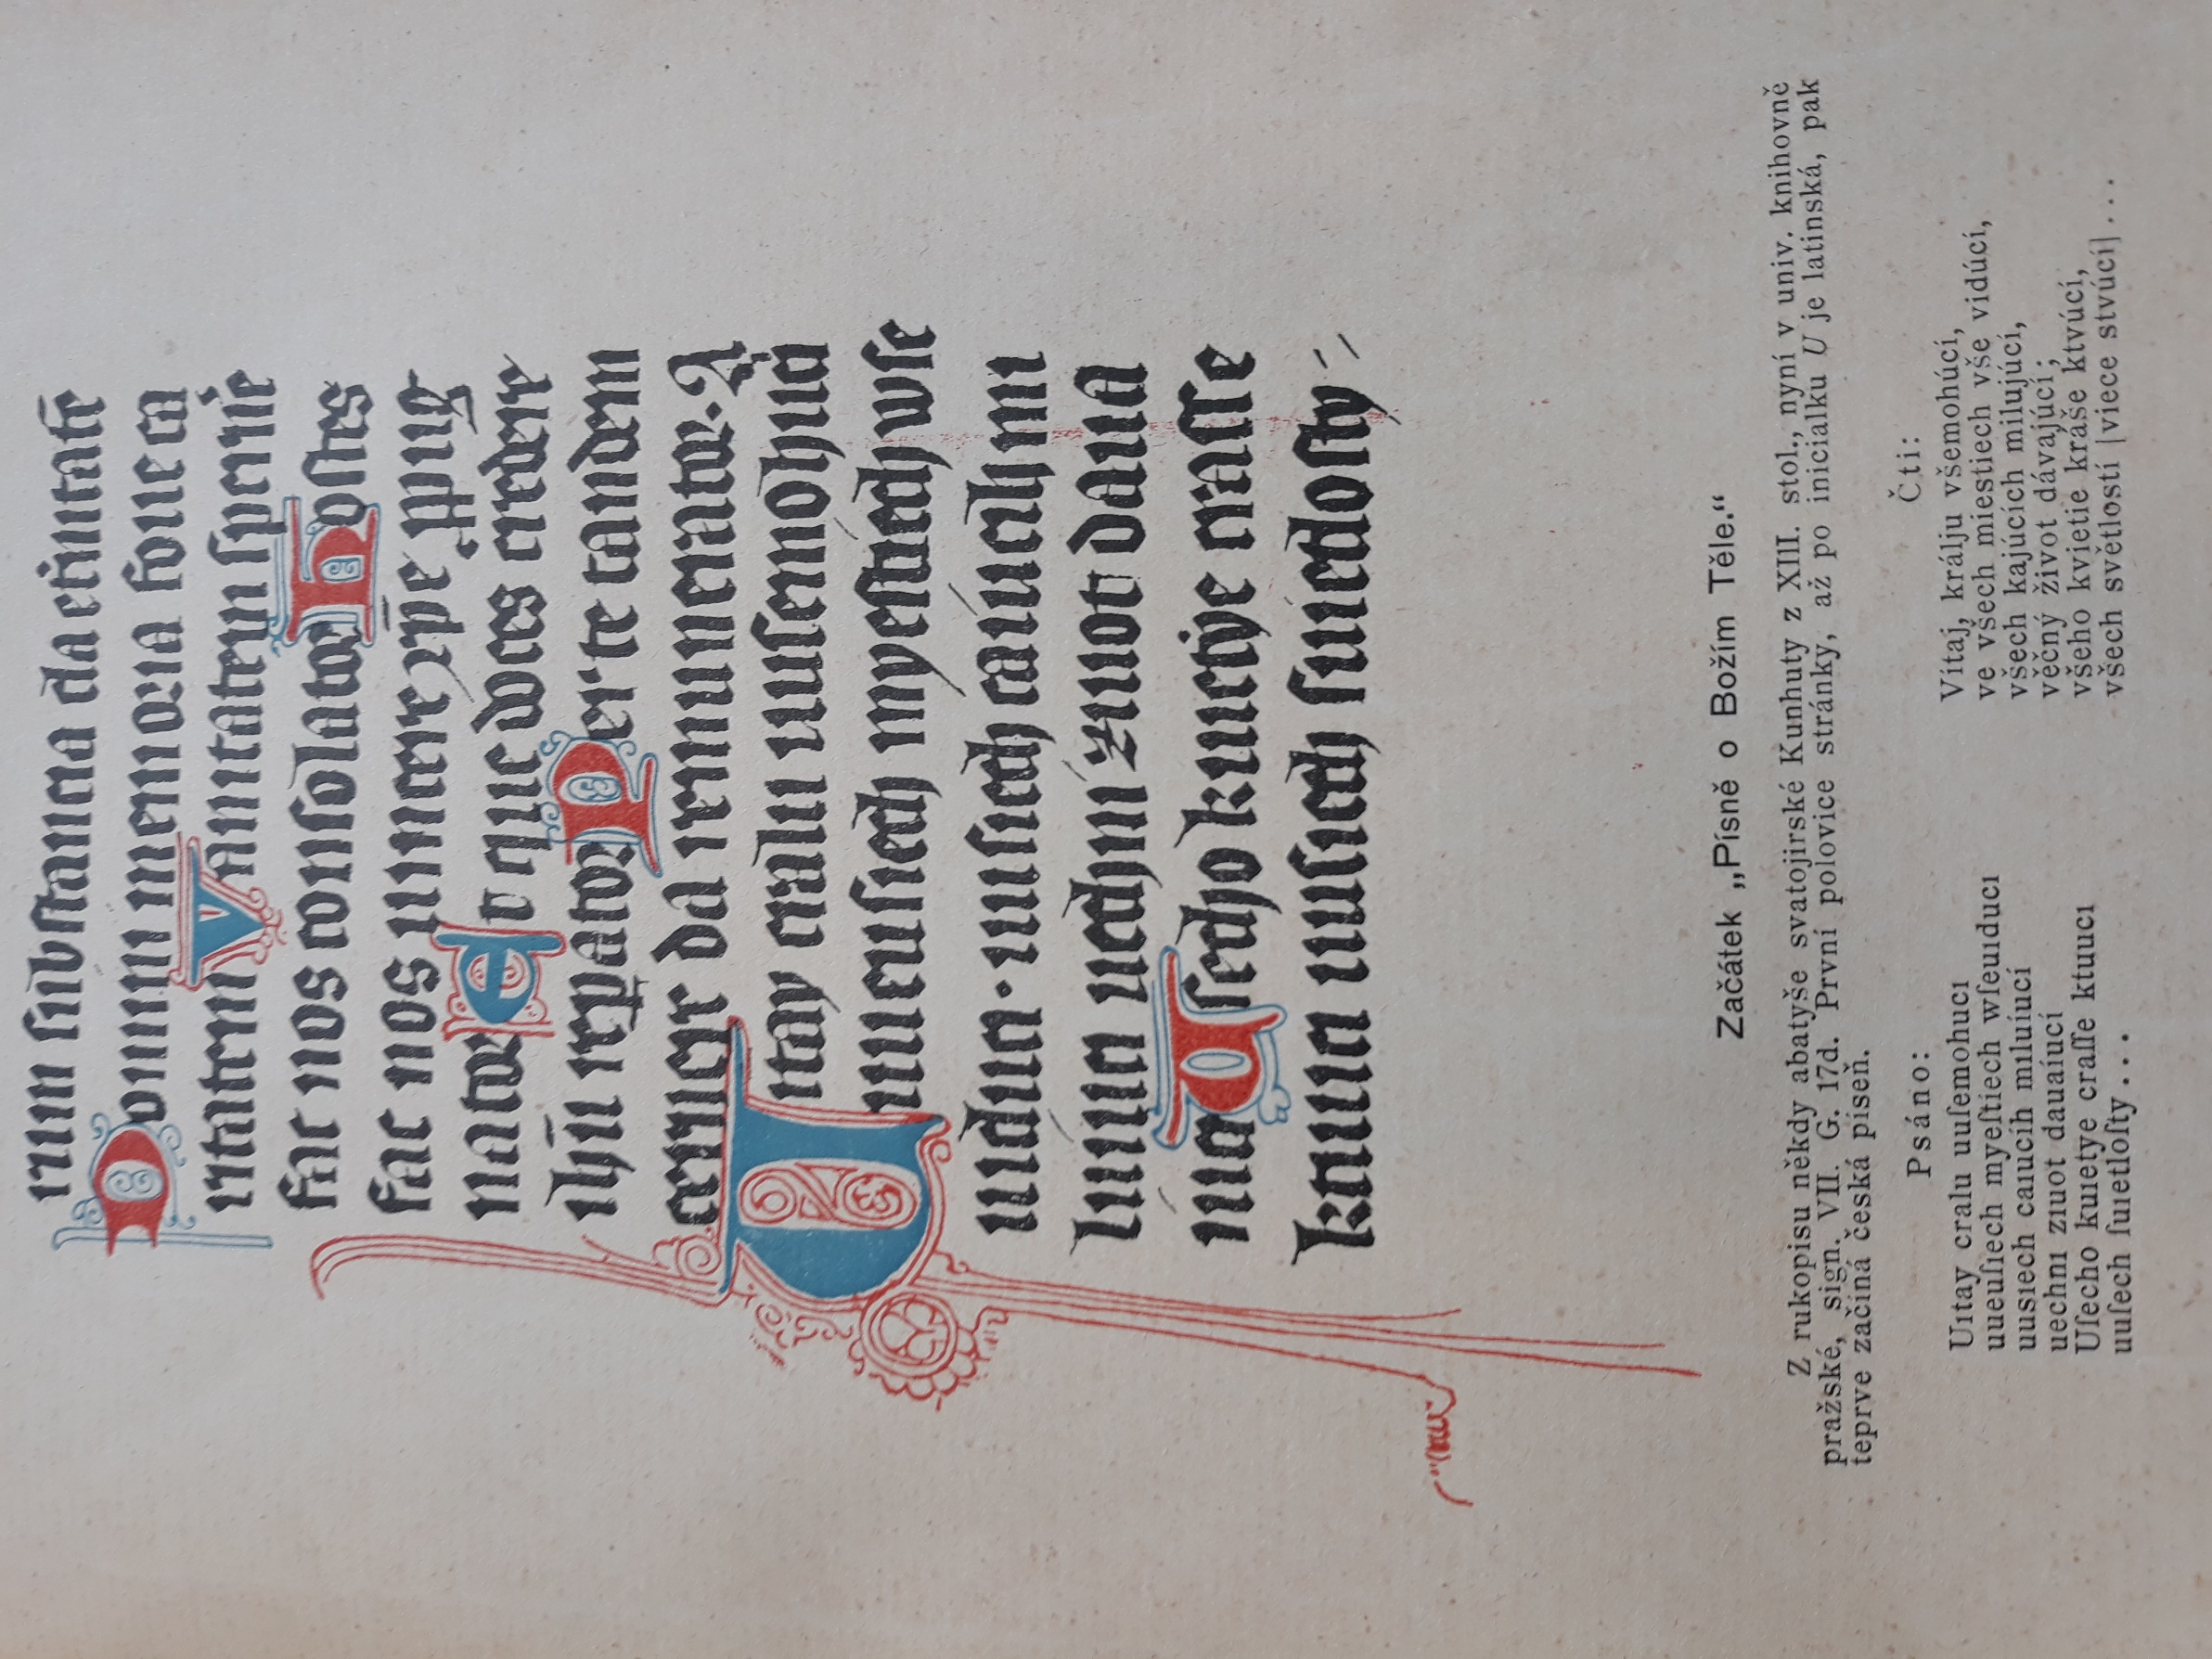 rum ſubſtancia da et̄nitate
Domini memoria foue ca
ritatem Vanitatem ſperne
fac nos conſolator Hoſtes
fac nos uincere xp̄e ꝓpug
nator Et que doces credere
ihū reꝑator Per te tandem
cernier da remunerator.
Uitay cralu uuſemohuci
uueuſiech myeſtiech wſe
uiduci · uuſiech caiucich mi
luiuci uechni ziuot daua
iuci Uſecho kuietye craſſe
ktuuci uuſiech ſuietloſty
Začátek „Písně o Božím Těle.“
Z rukopisu někdy abatyše svatojirské Kunhuty z XIII. stol., nyní v univ. knihovně
pražské, sign. VII. G. 17d. První polovice stránky, až po inicialku U je latinská, pak
teprve začíná česká píseň.
Psáno:
Uıtay cralu uuſemohucı
uueuſıech myeſtiech wſeuıducı
uusıech caıucıh mıluıucı
uechnı zıuot dauaıucı
Uſecho kuıetye craſſe ktuucı
uuſech ſuıetloſty . . .
Čti:
Vítaj, králju všemohúcí,
ve všech miestiech vše vidúcí,
všech kajúcích milujúcí,
věčný život dávajúcí;
všeho kvietie kráše ktvúcí,
všech světlostí [viece stvúcí] . . .